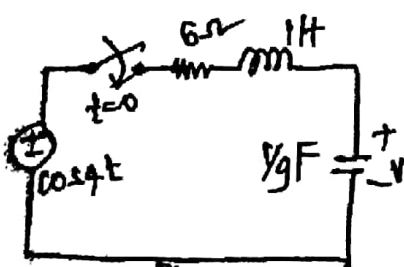 6Ω 1H
t=0
+
cos4t
1/9F
-V